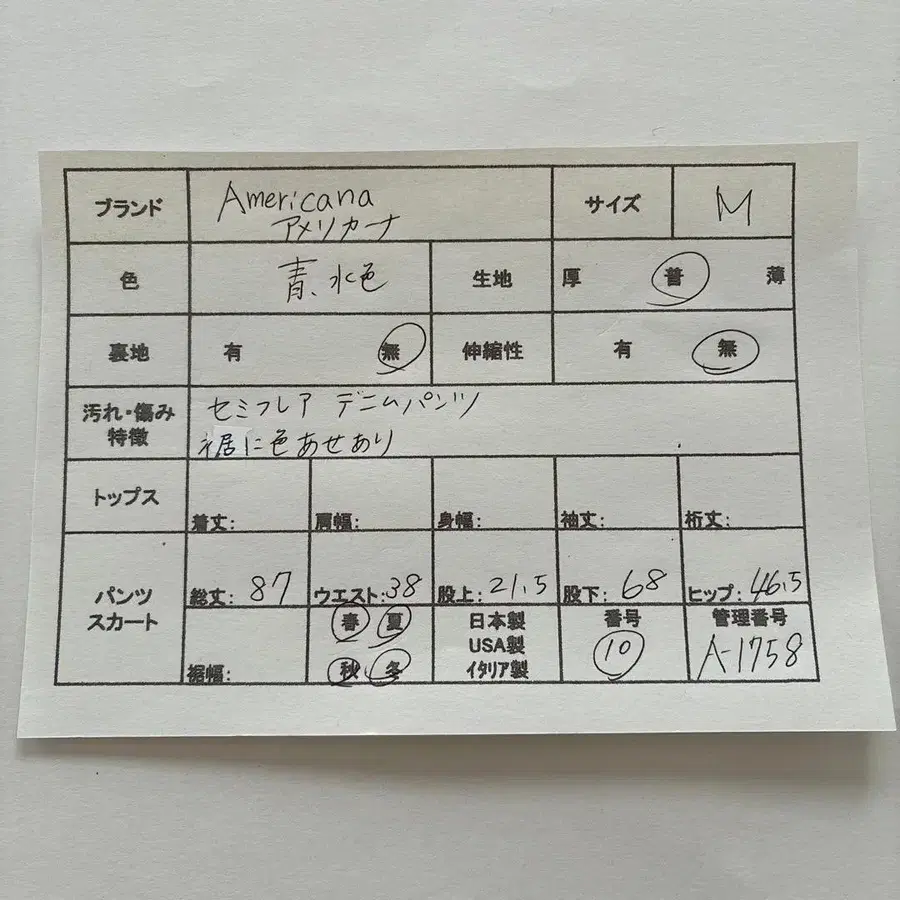 ブランド Americana サイズ M
アメリカーナ
色 青、水色 生地 厚 普 薄
裏地 有 無 伸縮性 有 無
汚れ・傷み セミフレア デニムパンツ
特徴 裾に色あせあり
トップス 着丈: 肩幅: 身幅: 袖丈: 裄丈:
パンツ 総丈: 87 ウエスト:38 股上:21.5 股下:68 ヒップ:46.5
スカート 裾幅: 春 夏 日本製 番号 管理番号
秋 冬 USA製 10 A-1758
イタリア製